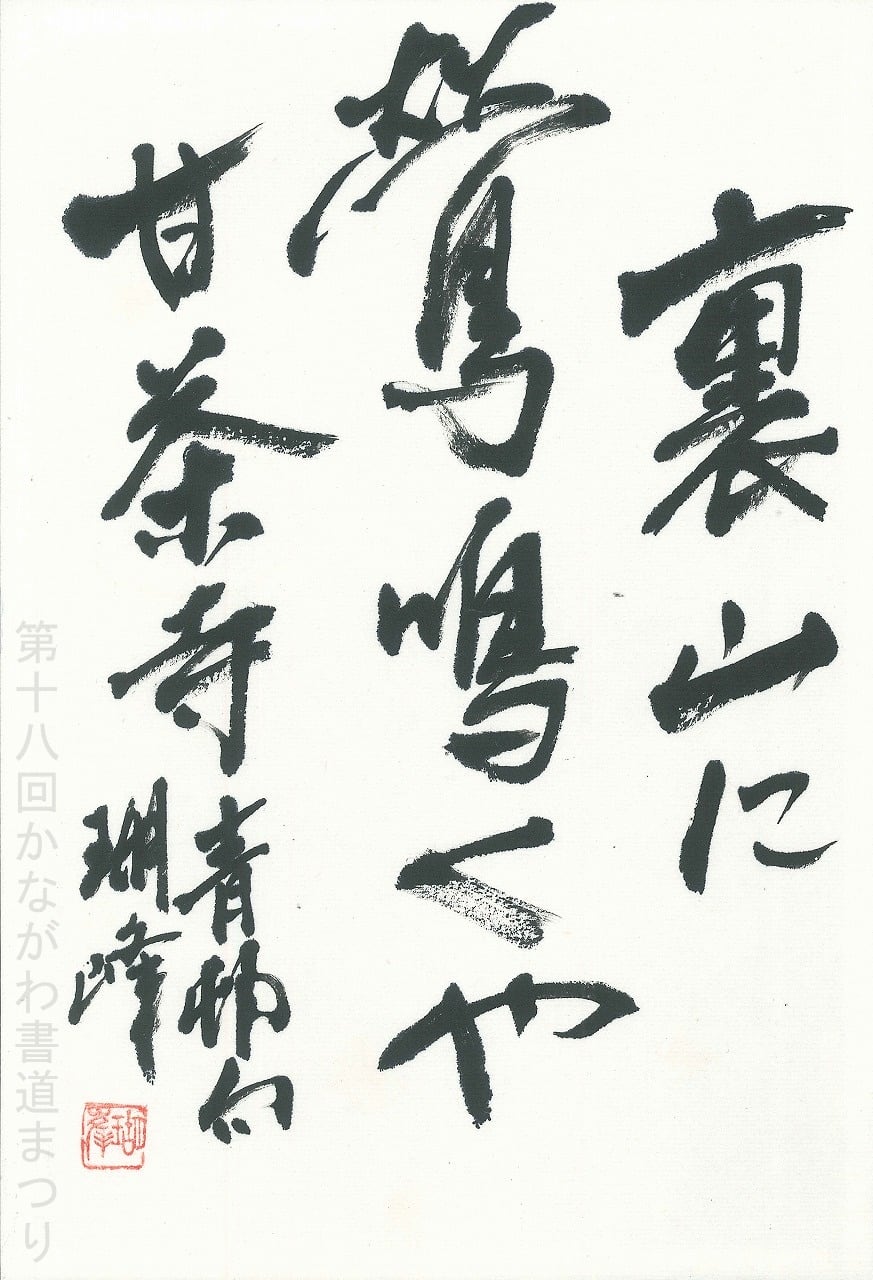 裏山に
鶯鳴くや
甘茶寺
青邨句
瑚峰
第十八回かながわ書道まつり